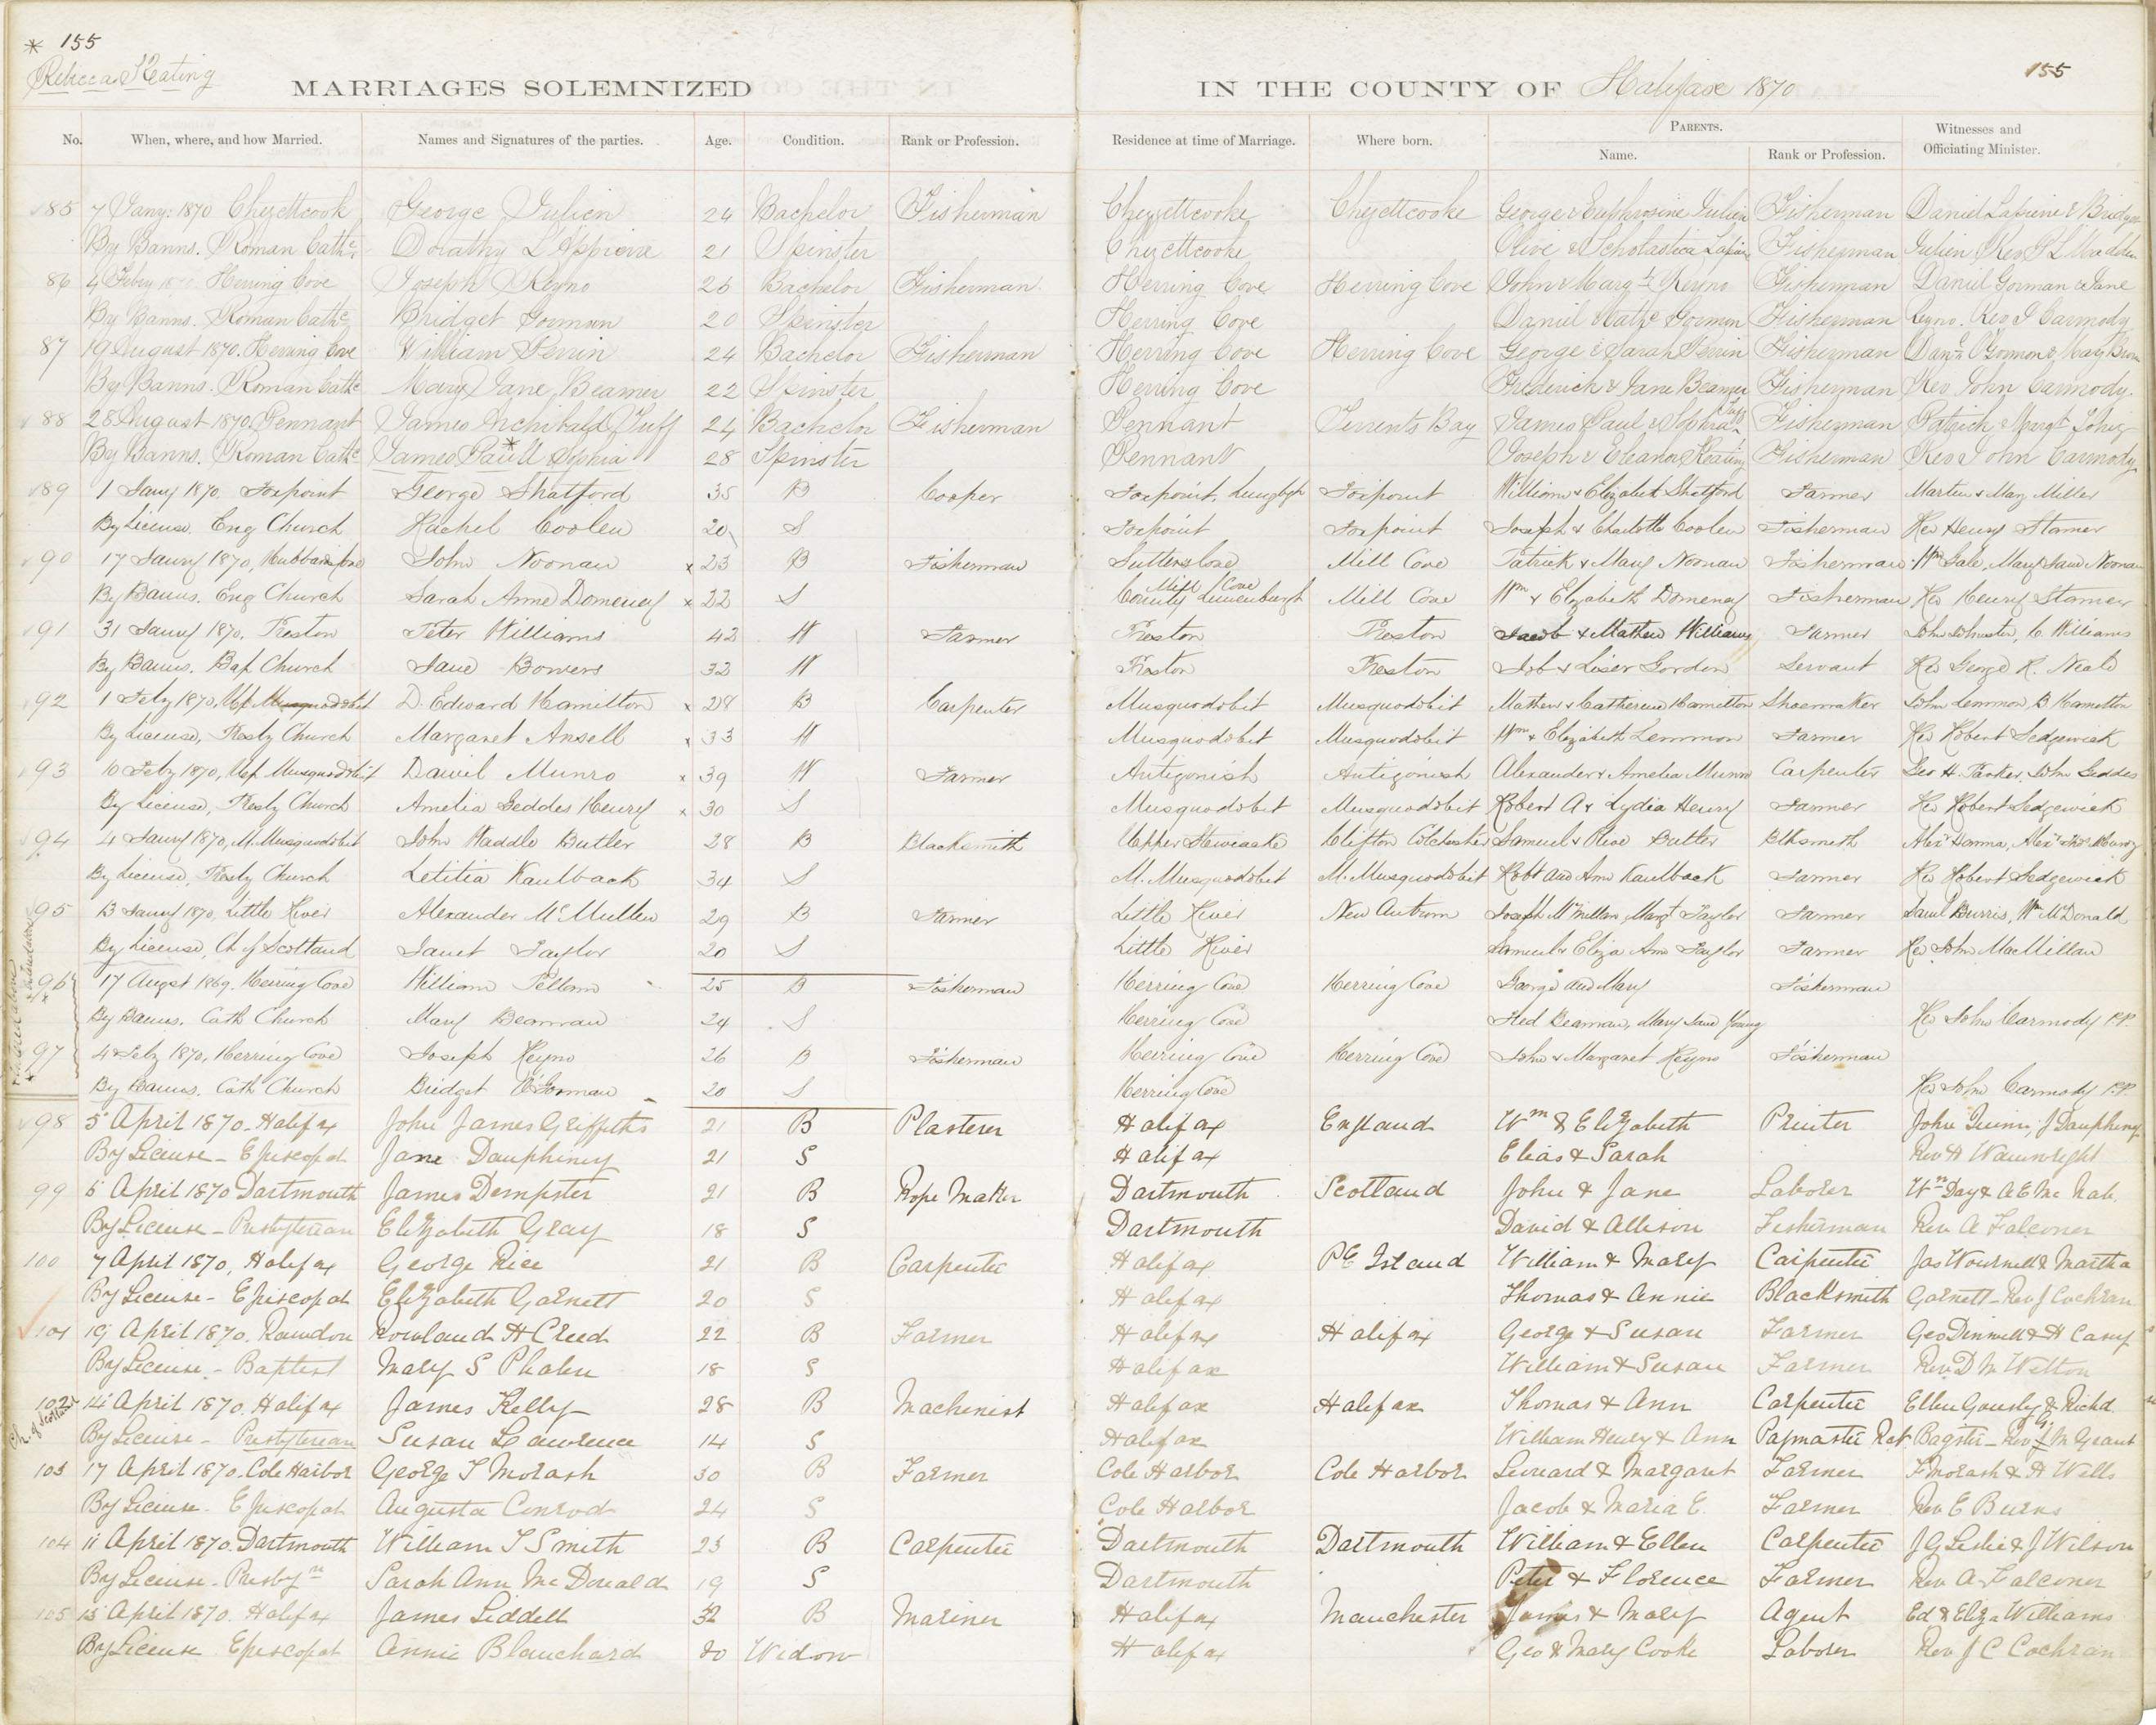 * 155
Rebecca Keating
MARRIAGES SOLEMNIZED IN THE COUNTY OF Halifax 1870 155
No. When, where, and how Married. Names and Signatures of the parties. Age. Condition. Rank or Profession. Residence at time of Marriage. Where born. PARENTS. Name. Rank or Profession. Witnesses and Officiating Minister.
85 7 Jany: 1870 Chezettcook George Julien 24 Bachelor Fisherman Chezettcooke Chezettcooke George & Euphrosine Julien Fisherman Daniel Lapierre &
By Banns. Roman Cathc. Dorathy L'Appierre 21 Spinster Chezettcooke Olive & Scholastica Lapierre Fisherman Julien Rev
86 4 Feby Herring Cove Joseph Reyno 26 Bachelor Fisherman Herring Cove Herring Cove John & Margt. Reyno Fisherman Daniel Gorman & Jane
By Banns. Roman Cathc. Bridget Gorman 20 Spinster Herring Cove Daniel Cathe Gorman Fisherman Reyno. Rev J Carmody
87 19 August 1870. Herring Cove William Perrin 24 Bachelor Fisherman Herring Cove Herring Cove George & Sarah Perrin Fisherman Danl. O'Gorman & Mary Brown
By Banns. Roman Cathc Mary Jane Beamer 22 Spinster Herring Cove Frederick & Jane Beamer Fisherman Rev. John Carmody.
88 28 August 1870. Pennant James Archibald Tuff 24 Bachelor Fisherman Pennant Terrents Bay James Paul & Sophia Tuff Fisherman Patrick & Margt
By Banns. Roman Cathc James Paul * & Sophia 28 Spinster Pennant Joseph & Eleanor Keating Fisherman Rev John Carmody
89 1 Jany 1870. Foxpoint George Shatford 35 B Cooper Foxpoint, Foxpoint William & Elizabeth Shatford Farmer Martin & Mary Miller
By License. Eng Church Rachel Coolen 20 S Foxpoint Foxpoint Joseph & Charlotte Coolen Fisherman Rev Henry Stamer
90 17 Jany 1870, Hubbards Cove John Noonan x 23 B Fisherman Mill Cove Patrick & Mary Noonan Fisherman Wm Gale, Mary Jane Noonan
By Banns. Eng Church Sarah Anne Domeney x 22 S Mill Cove County Lunenburgh Mill Cove Wm & Elizabeth Domeney Fisherman Rev Henry Stamer
91 31 Jany 1870. Preston Peter Williams 42 W Farmer Preston Preston Jacob & Mathew Williams Farmer John Johnston, C. Williams
By Banns. Bap Church Jane Bowers 32 W Preston Preston Job & Loiser Gordon Servant Rev George R. Neale
92 1 Feby 1870, Up. Musquodobit D. Edward Hamilton x 28 B Carpenter Musquodobit Musquodobit Mathew & Catherine Hamilton Shoemaker John Lemmon, B Hamilton
By License, Presby Church Margaret Ansell x 33 W Musquodobit Musquodobit Wm & Elizabeth Lemmon Farmer Rev Robert Sedgewick
93 10 Feby 1870, Up. Musquodobit David Munro x 39 W Farmer Antigonish Antigonish Alexander & Amelia Munro Carpenter Geo H. Parker, John Geddes
By License, Presby Church Amelia Geddes Henry x 30 S Musquodobit Musquodobit Robert A & Lydia Henry Farmer Rev Robert Sedgewick
94 4 Jany 1870, M. Musquodobit John Waddle Butler 28 B Blacksmith Upper Stewiacke Clifton Colchester Samuel & Olive Butler Blksmith
By License, Presby Church Letitia Kaulback 34 S M. Musquodobit M. Musquodobit Robt and Ann Kaulback Farmer Rev Robert Sedgewick
95 13 Jany 1870, Little River Alexander McMullen 29 B Farmer Little River New Antrim Joseph McMillan, Margt Taylor Farmer Saml Burris, Wm McDonald
By License, Ch of Scotland Janet Taylor 20 S Little River Samuel & Eliza Ann Taylor Farmer Rev John MacMillan
96 17 Augst 1869. Herring Cove William 25 B Fisherman Herring Cove Herring Cove George and Mary Fisherman
By Banns. Cath Church Mary Beaman 24 S Herring Cove Fred Beaman, Mary Jane Young Rev John Carmody P.P.
97 4 Feby 1870, Herring Cove Joseph Reyno 26 B Fisherman Herring Cove Herring Cove John & Margaret Reyno Fisherman
By Banns. Cath Church Bridget O'Gorman 20 S Herring Cove Rev John Carmody P.P.
98 5 April 1870. Halifax John James Griffiths 21 B Plasterer Halifax England Wm & Elizabeth Printer John Quinn, J Dauphiney
By License - Episcopal Jane Dauphiney 21 S Halifax Elias & Sarah Rev H Wainwright
99 5 April 1870 Dartmouth James Dempster 21 B Rope Maker Dartmouth Scotland John & Jane Laborer Wm Day & A E Mc Nab.
By License - Presbyterian Elizabeth Gray 18 S Dartmouth David & Allison Fisherman Rev A Falconer
100 7 April 1870, Halifax George Rice 21 B Carpenter Halifax PE Island William & Mary Carpenter Jas Wournell & Martha
By License - Episcopal Elizabeth Garnett 20 S Halifax Thomas & Annie Blacksmith Garnett - Rev J Cochran
101 19 April 1870. Rawdon Rowland H Creed 22 B Farmer Halifax Halifax George & Susan Farmer Geo Dimmell & H Casey
By License - Baptist Mary S Phalen 18 S Halifax William & Susan Farmer Rev D M Welton
102 14 April 1870. Halifax James Kelly 28 B Machinist Halifax Halifax Thomas & Ann Carpenter Ellen Gously & Richd
Ch. of Scotland By License - Presbyterian Susan Lawrence 14 S Halifax William Henry & Ann Paymaster Ret Bagster - Rev G. M Grant
103 17 April 1870. Cole Harbor George T Morash 30 B Farmer Cole Harbor Cole Harbor Leonard & Margaret Farmer F Morash & H Wells
By License. Episcopal Augusta Conrod 24 S Cole Harbor Jacob & Maria E. Farmer Rev E Burns
104 11 April 1870. Dartmouth William T Smith 23 B Carpenter Dartmouth Dartmouth William & Ellen Carpenter J G Leslie & J Wilson
By License - Presbyn Sarah Ann Mc Donald 19 S Dartmouth Peter & Florence Farmer Rev A Falconer
105 13 April 1870. Halifax James Liddell 32 B Mariner Halifax Manchester James & Mary Agent Ed & Eliza Williams
By License Episcopal Annie Blanchard 20 Widow Halifax Geo & Mary Cooke Laborer Rev J C Cochran